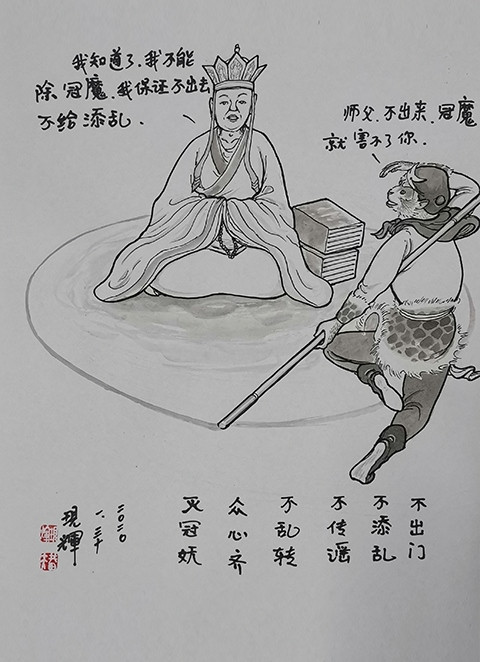 我知道了,我不能
除冠魔,我保证不出去
不给添乱.
师父,不出来,冠魔
就害不了你.
不出门
不添乱
不传谣
不乱转
众心齐
灭冠妖
二〇二〇
一、三十
现辉